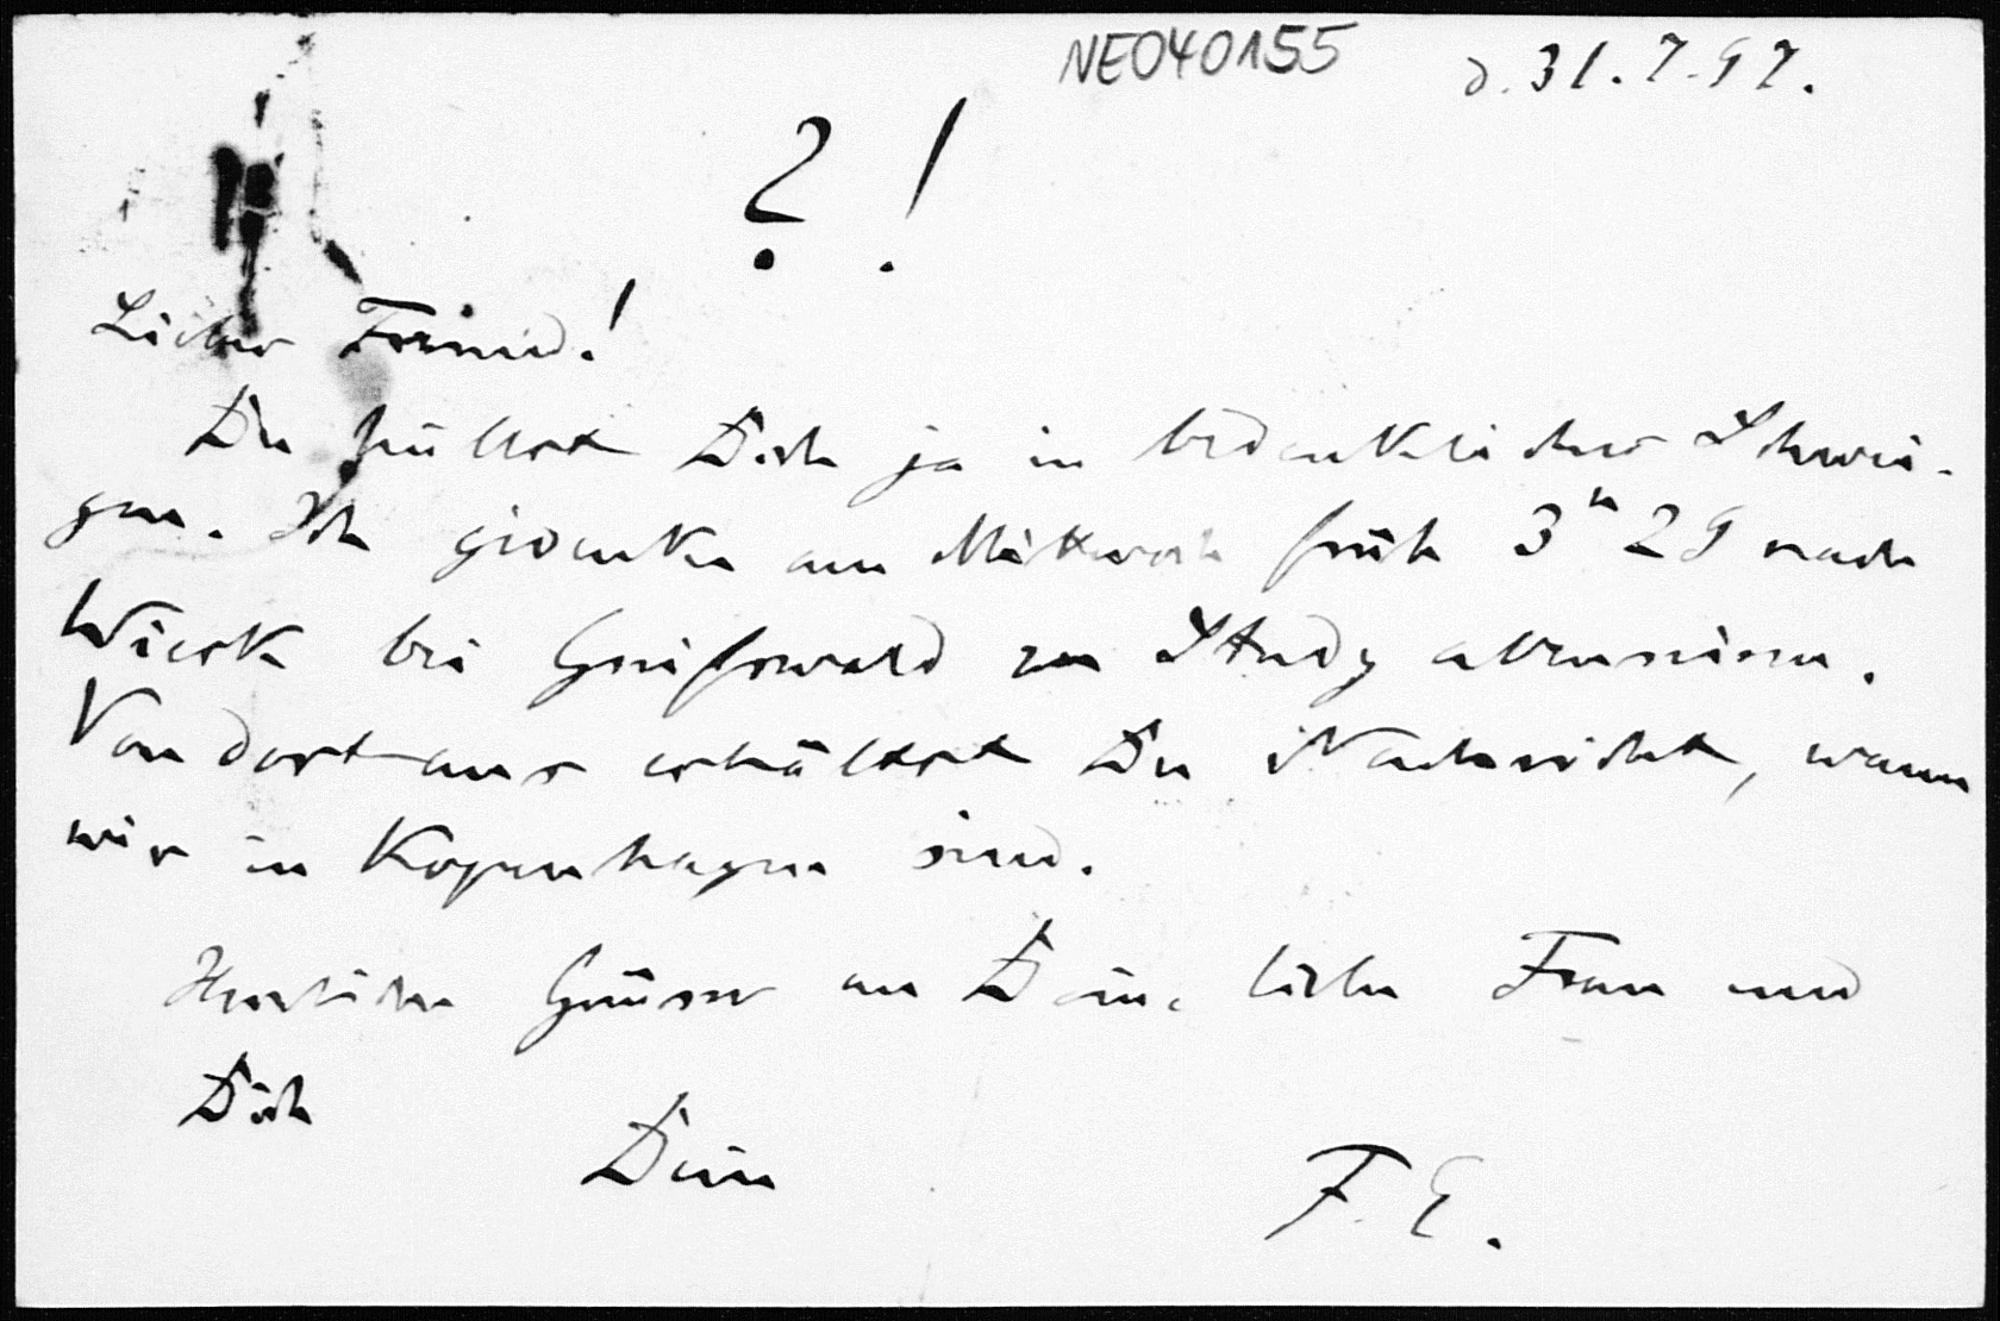 NE040155 d. 31.7.97.
? !
Lieber Freund!
Du hüllst Dich ja in bedenkliches Schwei-
gen. Ich gedenke am Mittwoch früh 3ʰ 29 nach
Wieck bei Greifswald zu Study abzureisen.
Von dort aus erhältst Du Nachricht, wann
wir in Kopenhagen sind.
Herzliche Grüsse an Deine liebe Frau und
Dich
Dein
F. E.